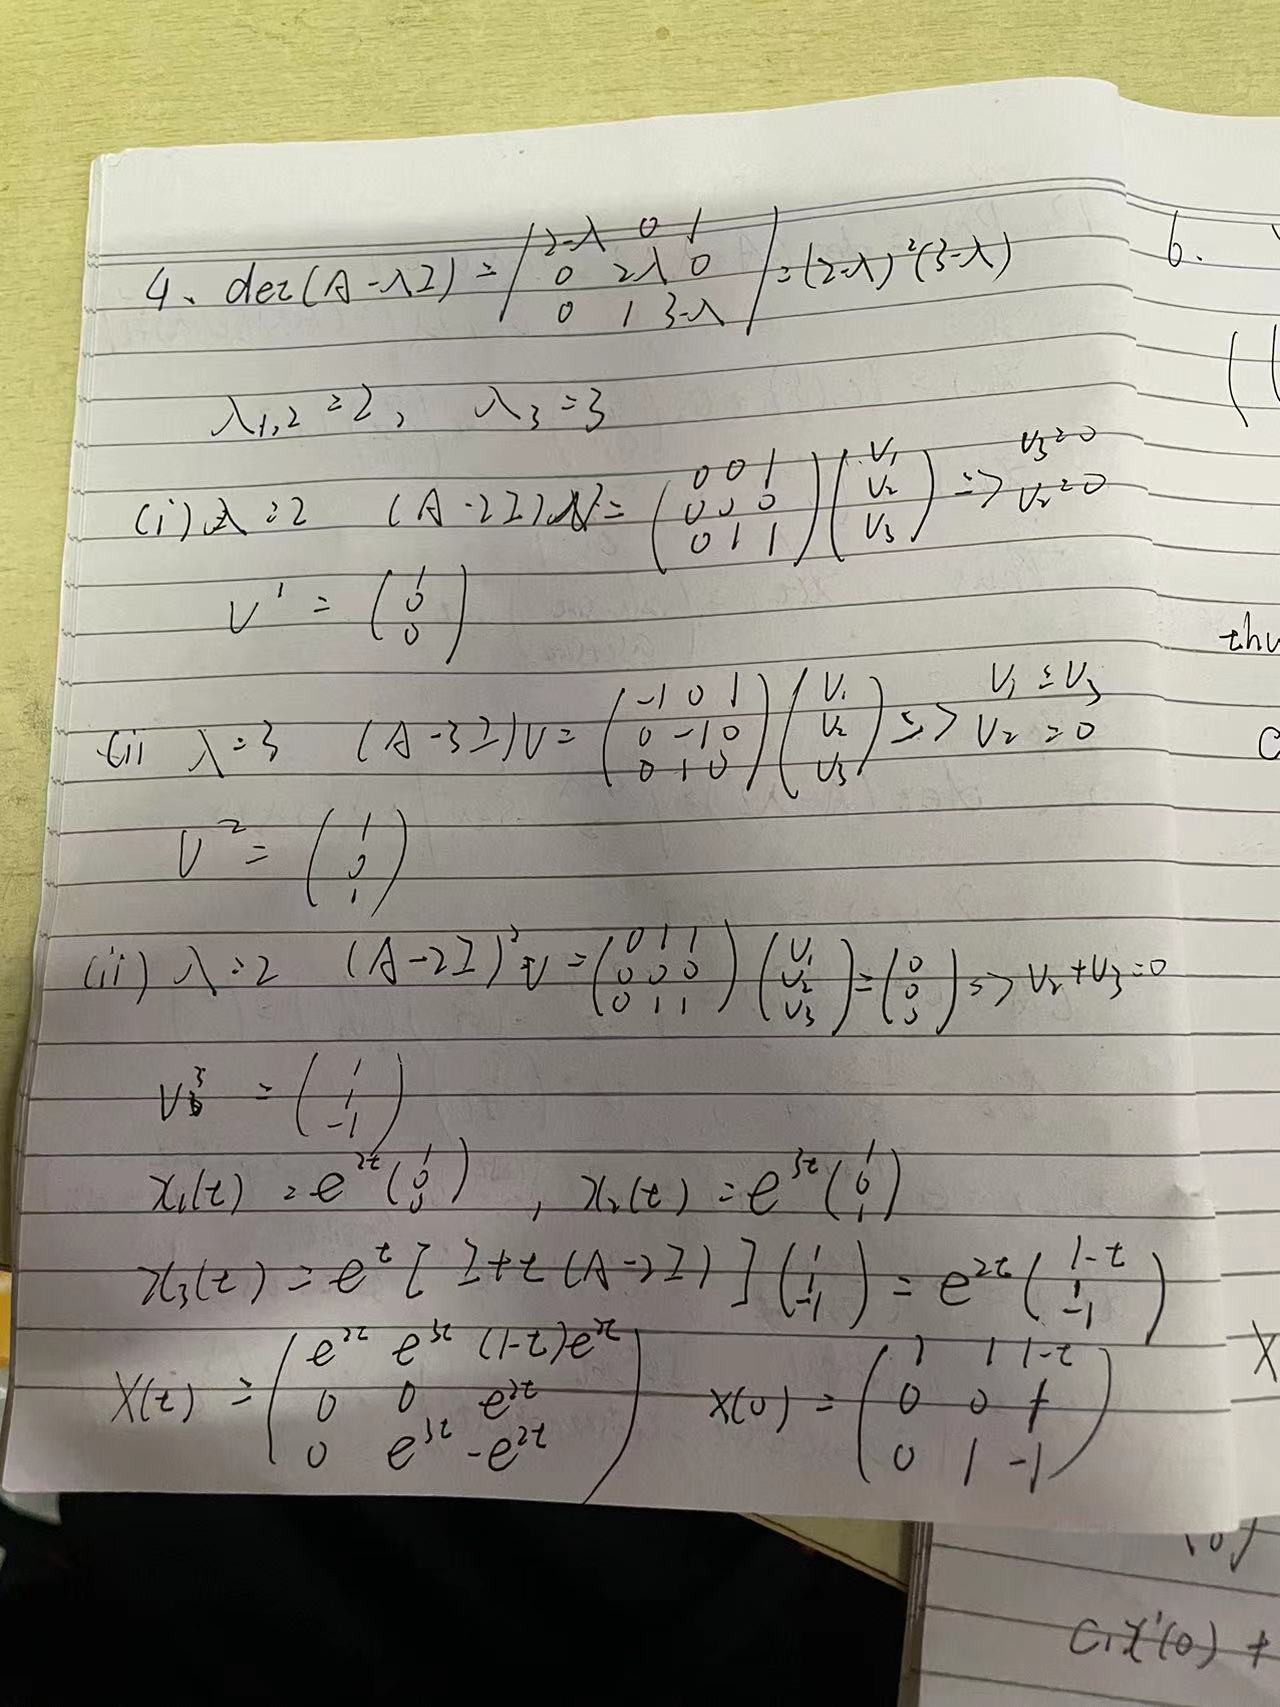 4、 det(A-λI) = | 2-λ 0 1 ; 0 2-λ 0 ; 0 1 3-λ | = (2-λ)²(3-λ)
λ1,2 = 2, λ3 = 3
(i) λ = 2 (A-2I)V = ( 0 0 1 ; 0 0 0 ; 0 1 1 ) ( V1 ; V2 ; V3 ) => V3 = 0 V2 = 0
V¹ = ( 1 ; 0 ; 0 )
(ii λ = 3 (A-3I)V = ( -1 0 1 ; 0 -1 0 ; 0 1 0 ) ( V1 ; V2 ; V3 ) => V1 = V3 V2 = 0
V² = ( 1 ; 0 ; 1 )
(ii) λ = 2 (A-2I)²V = ( 0 1 1 ; 0 0 0 ; 0 1 1 ) ( V1 ; V2 ; V3 ) = ( 0 ; 0 ; 0 ) => V2 + V3 = 0
V³ = ( 1 ; 1 ; -1 )
x1(t) = e^2t ( 1 ; 0 ; 0 ) , x2(t) = e^3t ( 1 ; 0 ; 1 )
x3(t) = e^t [ I + t (A-2I) ] ( 1 ; 1 ; -1 ) = e^2t ( 1-t ; 1 ; -1 )
X(t) = ( e^2t e^3t (1-t)e^2t ; 0 0 e^2t ; 0 e^3t -e^2t ) X(0) = ( 1 1 1-t ; 0 0 1 ; 0 1 -1 )
6.
X
C1x¹(0) +